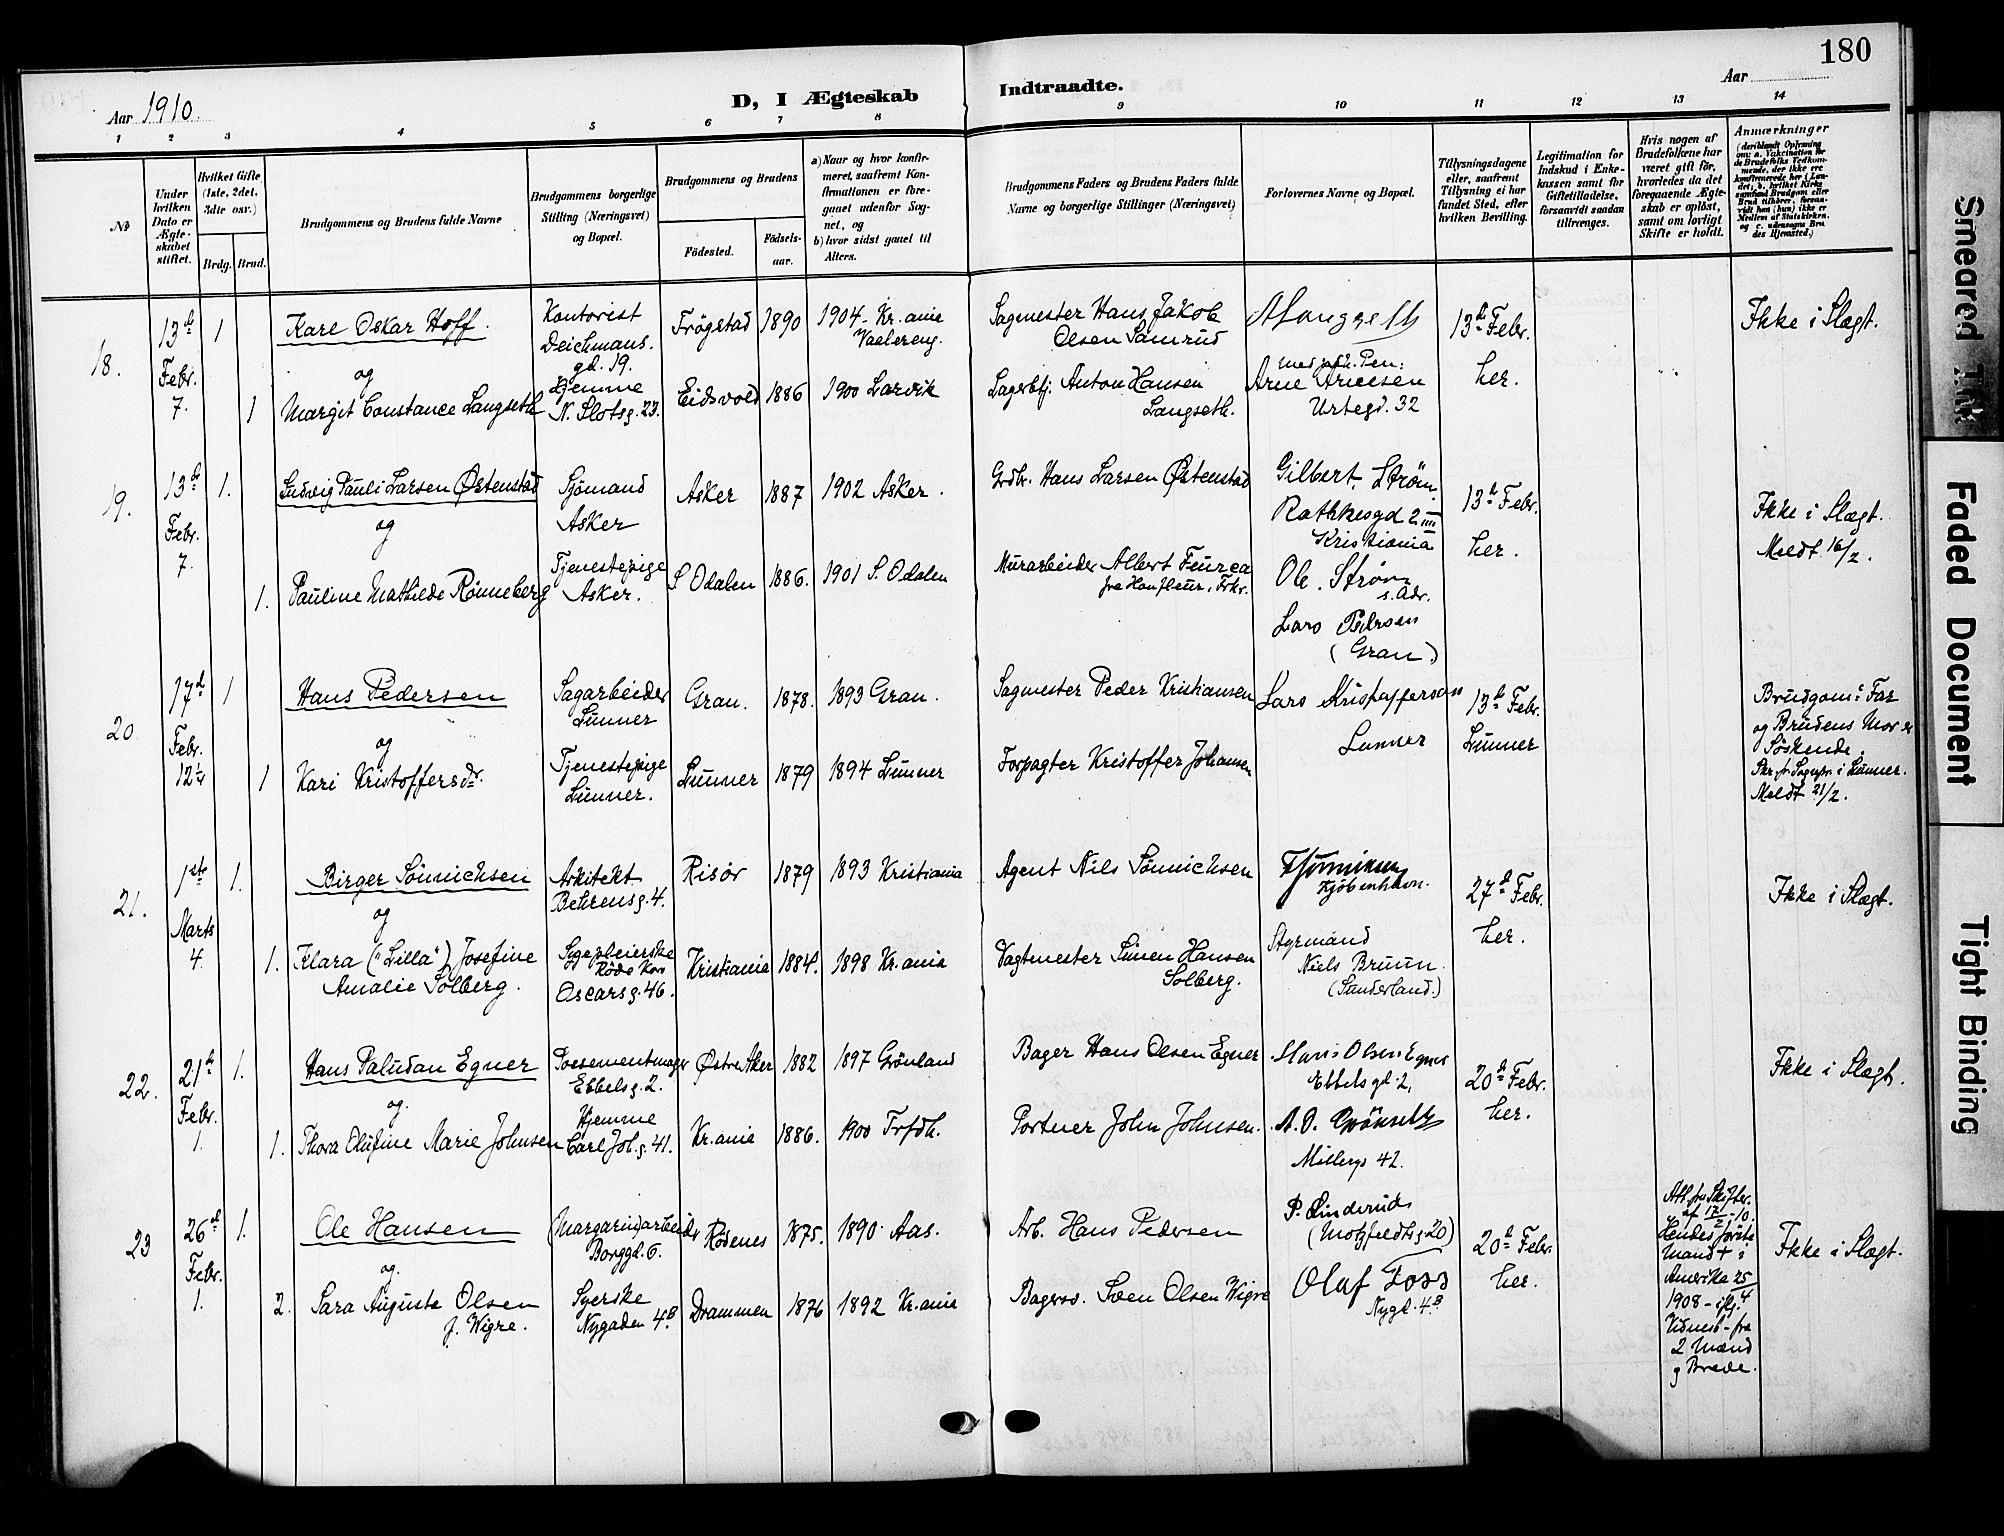 180
Aar 1910.
D, I Ægteskab Indtraadte.
Aar
1 2 3 4 5 6 7 8 9 10 11 12 13 14
No
Under hvilken Dato er Ægteskabet stiftet.
Hvilket Gifte (1ste, 2det, 3die osv.)
Brdg. Brud.
Brudgommens og Brudens fulde Navne
Brudgommens borgerlige Stilling (Næringsvei) og Bopæl.
Brudgommens og Brudens
Fødested.
Fødsels-aar.
a) Naar og hvor konfirmeret, saafremt Konfirmationen er foregaaet udenfor Sognet, og
b) hvor sidst gaaet til Alters.
Brudgommens Faders og Brudens Faders fulde Navne og borgerlige Stillinger (Næringsvei)
Forlovernes Navne og Bopæl.
Tillysningsdagene eller, saafremt Tillysning ei har fundet Sted, efter hvilken Bevilling.
Legitimation for Indskud i Enkekassen samt for Giftetilladelse, forsaavidt saadan tiltrænges.
Hvis nogen af Brudefolkene har været gift før, hvorledes da det foregaaende Ægteskab er opløst, samt om lovligt Skifte er holdt.
Anmærkninger
18. 13de Febr. 7.
1 Kare Oskar Hoff. Kontorist Deichmans. gd. 19. Frøgstad 1890 1904 - Kr.ania Vaalereng. Sagmester Hans Jakob Olsen Samrud
og
1 Margit Constance Langseth Hjemme N. Slotsg. 23. Eidsvold 1886 1900 Larvik Lagerbtj. Anton Hansen Langseth. Arne Arnesen Urtegd. 32
13de Febr. her.
Ikke i Slægt.
19. 13de Febr. 7.
1. Ludvig Pauli Larsen Østenstad Sjømand Asker Asker 1887 1902 Asker. Grdbr. Hans Larsen Østenstad Gilbert Strøm Rathkesgd 2 III Kristiania
og
1. Pauline Mathilde Rønneberg Tjenestepige Asker. S Odalen 1886. 1901 S. Odalen Murarbeider Albert Feurea fra Honfleur, Frkr. Ole Strøm s. Adr.
13de Febr. her.
Ikke i Slægt.
Meldt 16/2.
Lars Pedersen (Gran)
20 17de Febr. 12½
1 Hans Pedersen Sagarbeider Lunner Gran. 1878. 1893 Gran. Sagmester Peder Kristiansen Lars Kristoffersen Lunner
og
1 Kari Kristoffersdr. Tjenestepige Lunner. Lunner 1879 1894 Lunner Forpagter Kristoffer Johansen
13de Febr. Lunner
Brudgoms Far og Brudens Mor er Søskende.
Skr. fr. Sogepr. i Lunner.
Meldt 21/2.
21. 1ste Marts 4.
1. Birger Sønnichsen Arkitekt Behrensg. 4. Risör 1879 1893 Kristiania Agent Nils Sønnichsen Kjøbenhavn.
og
1. Klara ("Lilla") Josefine Amalie Solberg. Sygepleierske Røde Kors Oscarsg. 46. Kristiania 1884. 1898 Kr.ania Vagtmester Simen Hansen Solberg. Styrmand Niels Bruun. (Sunderland.)
27de Febr. her.
Ikke i Slægt.
22. 21de Febr. 1.
1. Hans Paludan Egner Possementmager Ebbelsg. 2. Østre Aker 1882 1897 Grønland Bager Hans Olsen Egner Hans Olsen Egner Ebbelsgd. 2,
og.
1. Thora Olufine Marie Johnsen Hjemme Carl Joh. g. 41. Kr.ania 1886. 1900 Trfdh. Portner John Johnsen. Møllergs 42.
20de Febr. her.
Ikke i Slægt.
23 26de Febr. 1.
1. Ole Hansen (Margarin)arbeider Borggd. 6. Rødenes 1875. 1890 Aas. Arb. Hans Pedersen P. Linderud (Motzfeldtsg 20)
og.
2. Sara Auguste Olsen f. Wigre. Syerske Nygaden 4B Drammen 1876 1892 Kr.ania Bagersv. Sven Olsen Wigre Olaf Foss Nygd. 4B
20de Febr. her.
Att. fra Skifter. af 17/2 - 10.
Hendes første Mand + i Amerika 25/4 1908 - iflg. Vidnesb - fra 2 Mænd g Brede.
Ikke i Slægt.
Smeared Ink
Faded Document
Tight Binding